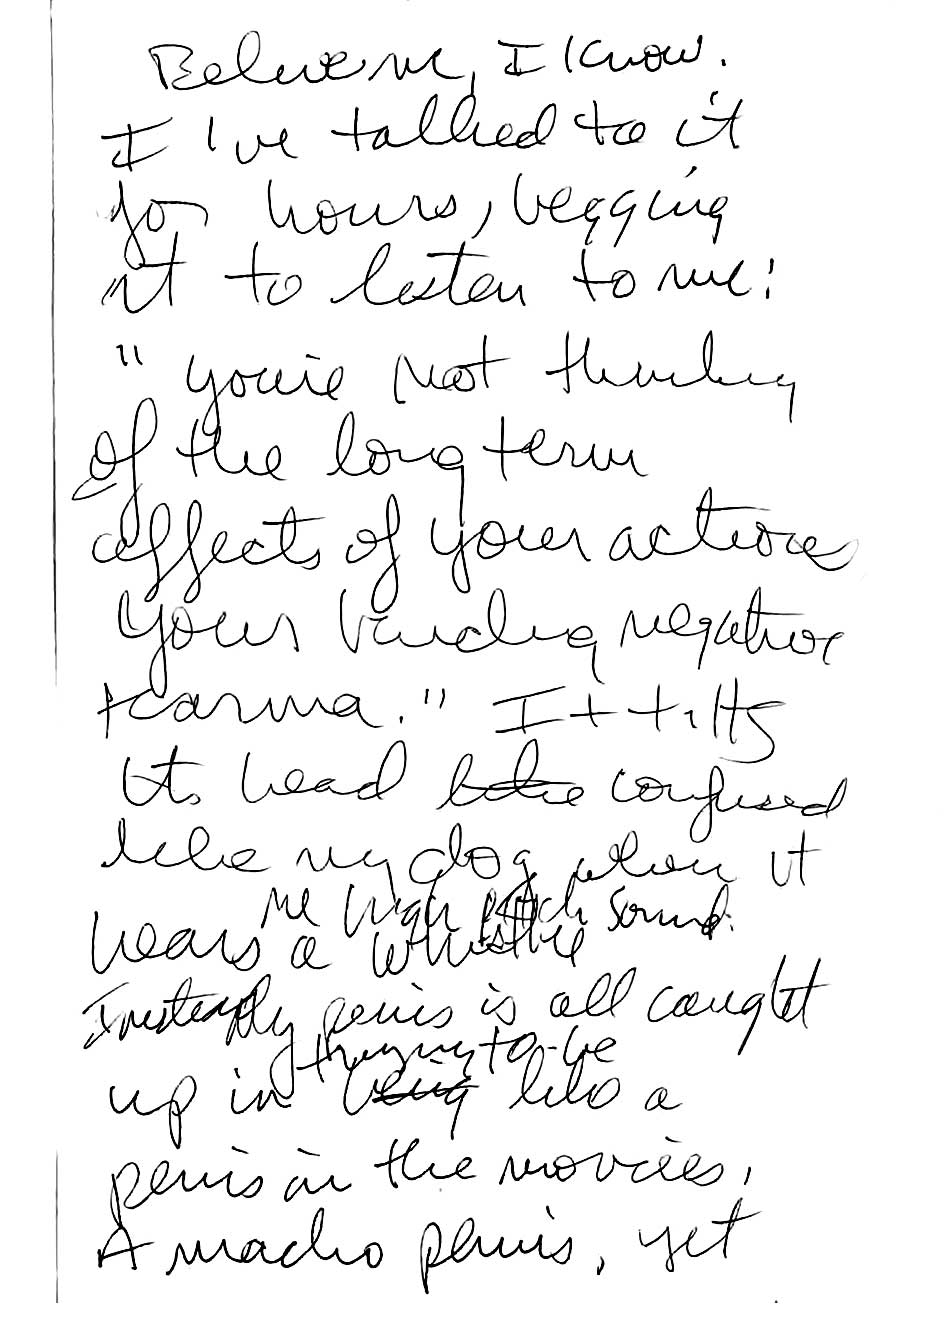 Believe me, I know.
I've talked to it
for hours, begging
it to listen to me:
"You're not thinking
of the long term
affects of your actions
Your building negative
karma." It tilts
its head like confused
like my dog when it
the high pitch sound.
hears a whistle
Instead my penis is all caught
trying to be
up in being like a
penis in the movies,
A macho penis, yet